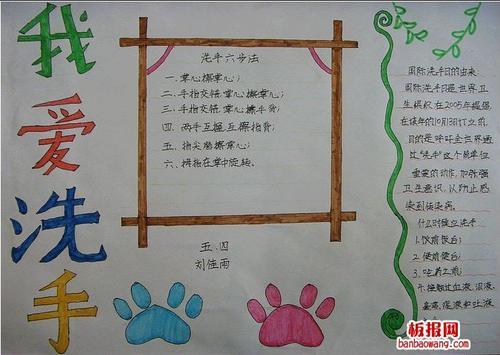 我爱洗手
洗手六步法
一、掌心擦掌心；
二、手指交错，掌心擦掌心；
三、手指交错，掌心擦手背；
四、两手互握互擦指背；
五、指尖磨擦掌心；
六、拇指在掌中旋转。
五.四
刘佳雨
国际洗手日的由来：
国际洗手日是世界卫
生组织在2005年提倡
在该年的10月13日订立的，
目的是呼吁全世界通
过“洗手”这个简单但
重要的动作，加强
卫生意识，以防止感
染到传染病。
什么时候应洗手
1. 饭前饭后；
2. 便前便后；
3. 吃药之前；
4. 接触过血液、泪液、
鼻涕、痰液和唾液
板报网
banbaowang.com